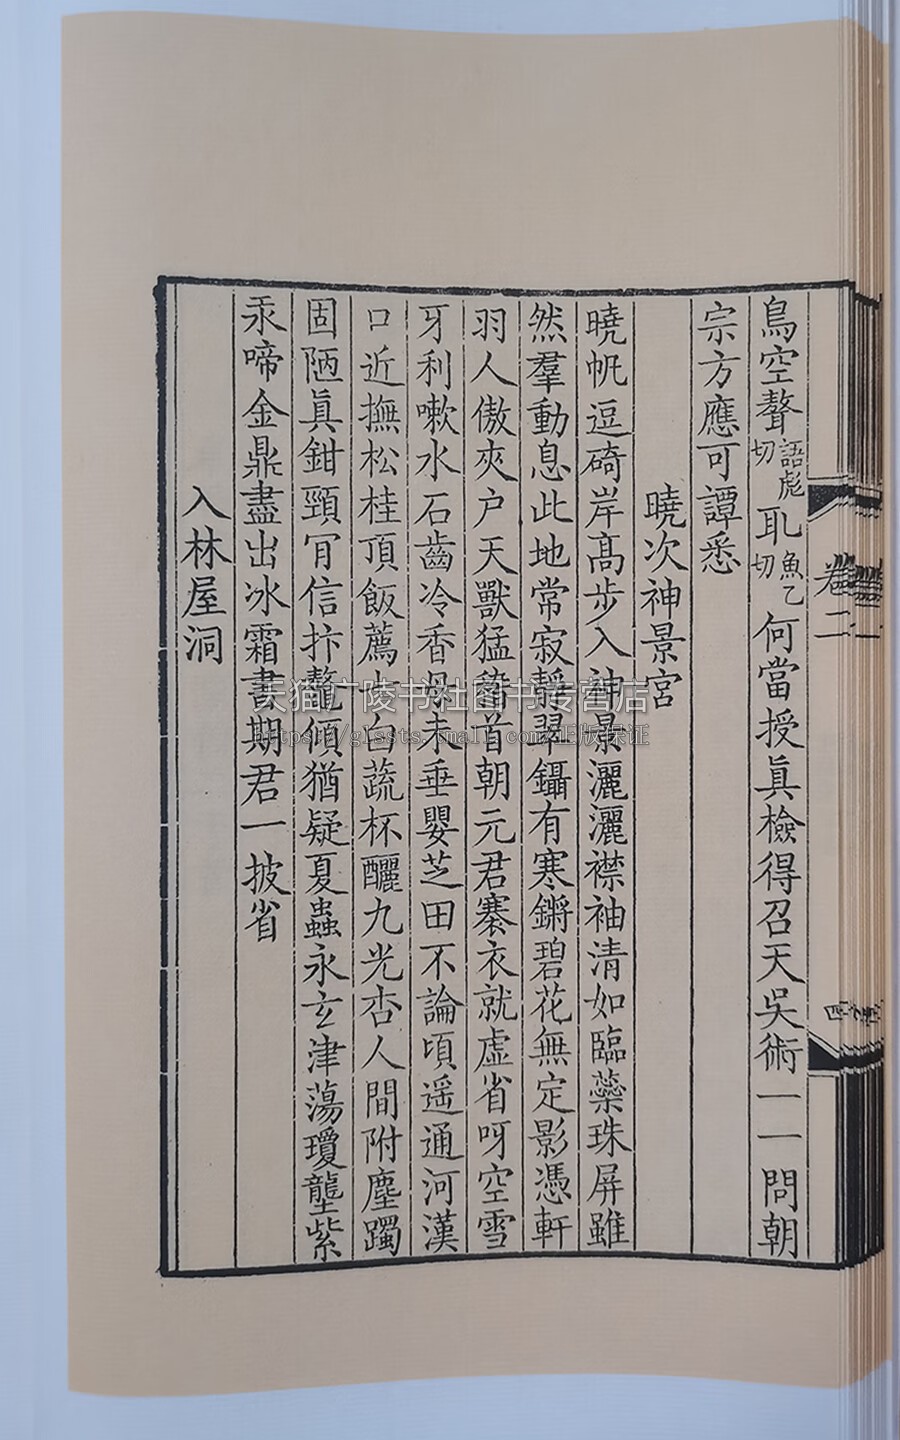 鳥空聱語彪切耴魚乙切何當授眞檢得召天吳術一一問朝
宗方應可譚悉
曉次神景宮
曉帆逗碕岸高步入神景灑灑襟袖清如臨蘂珠屏雖
然羣動息此地常寂靜翠鑷有寒鏘碧花無定影憑軒
羽人傲夾户天獸猛稽首朝元君褰衣就虛省呀空雪
牙利嗽水石齒冷香母未垂嬰芝田不論頃遥通河漢
口近撫松桂頂飯薦七白蔬杯釃九光杏人間附塵躅
固陋眞鉗頸肎信抃鼇傾猶疑夏蟲永玄津蕩瓊壟紫
汞啼金鼎盡出冰霜書期君一披省
入林屋洞
卷二
四
天猫广陵书社图书专营店
https://glssts.tmall.com/正版保证